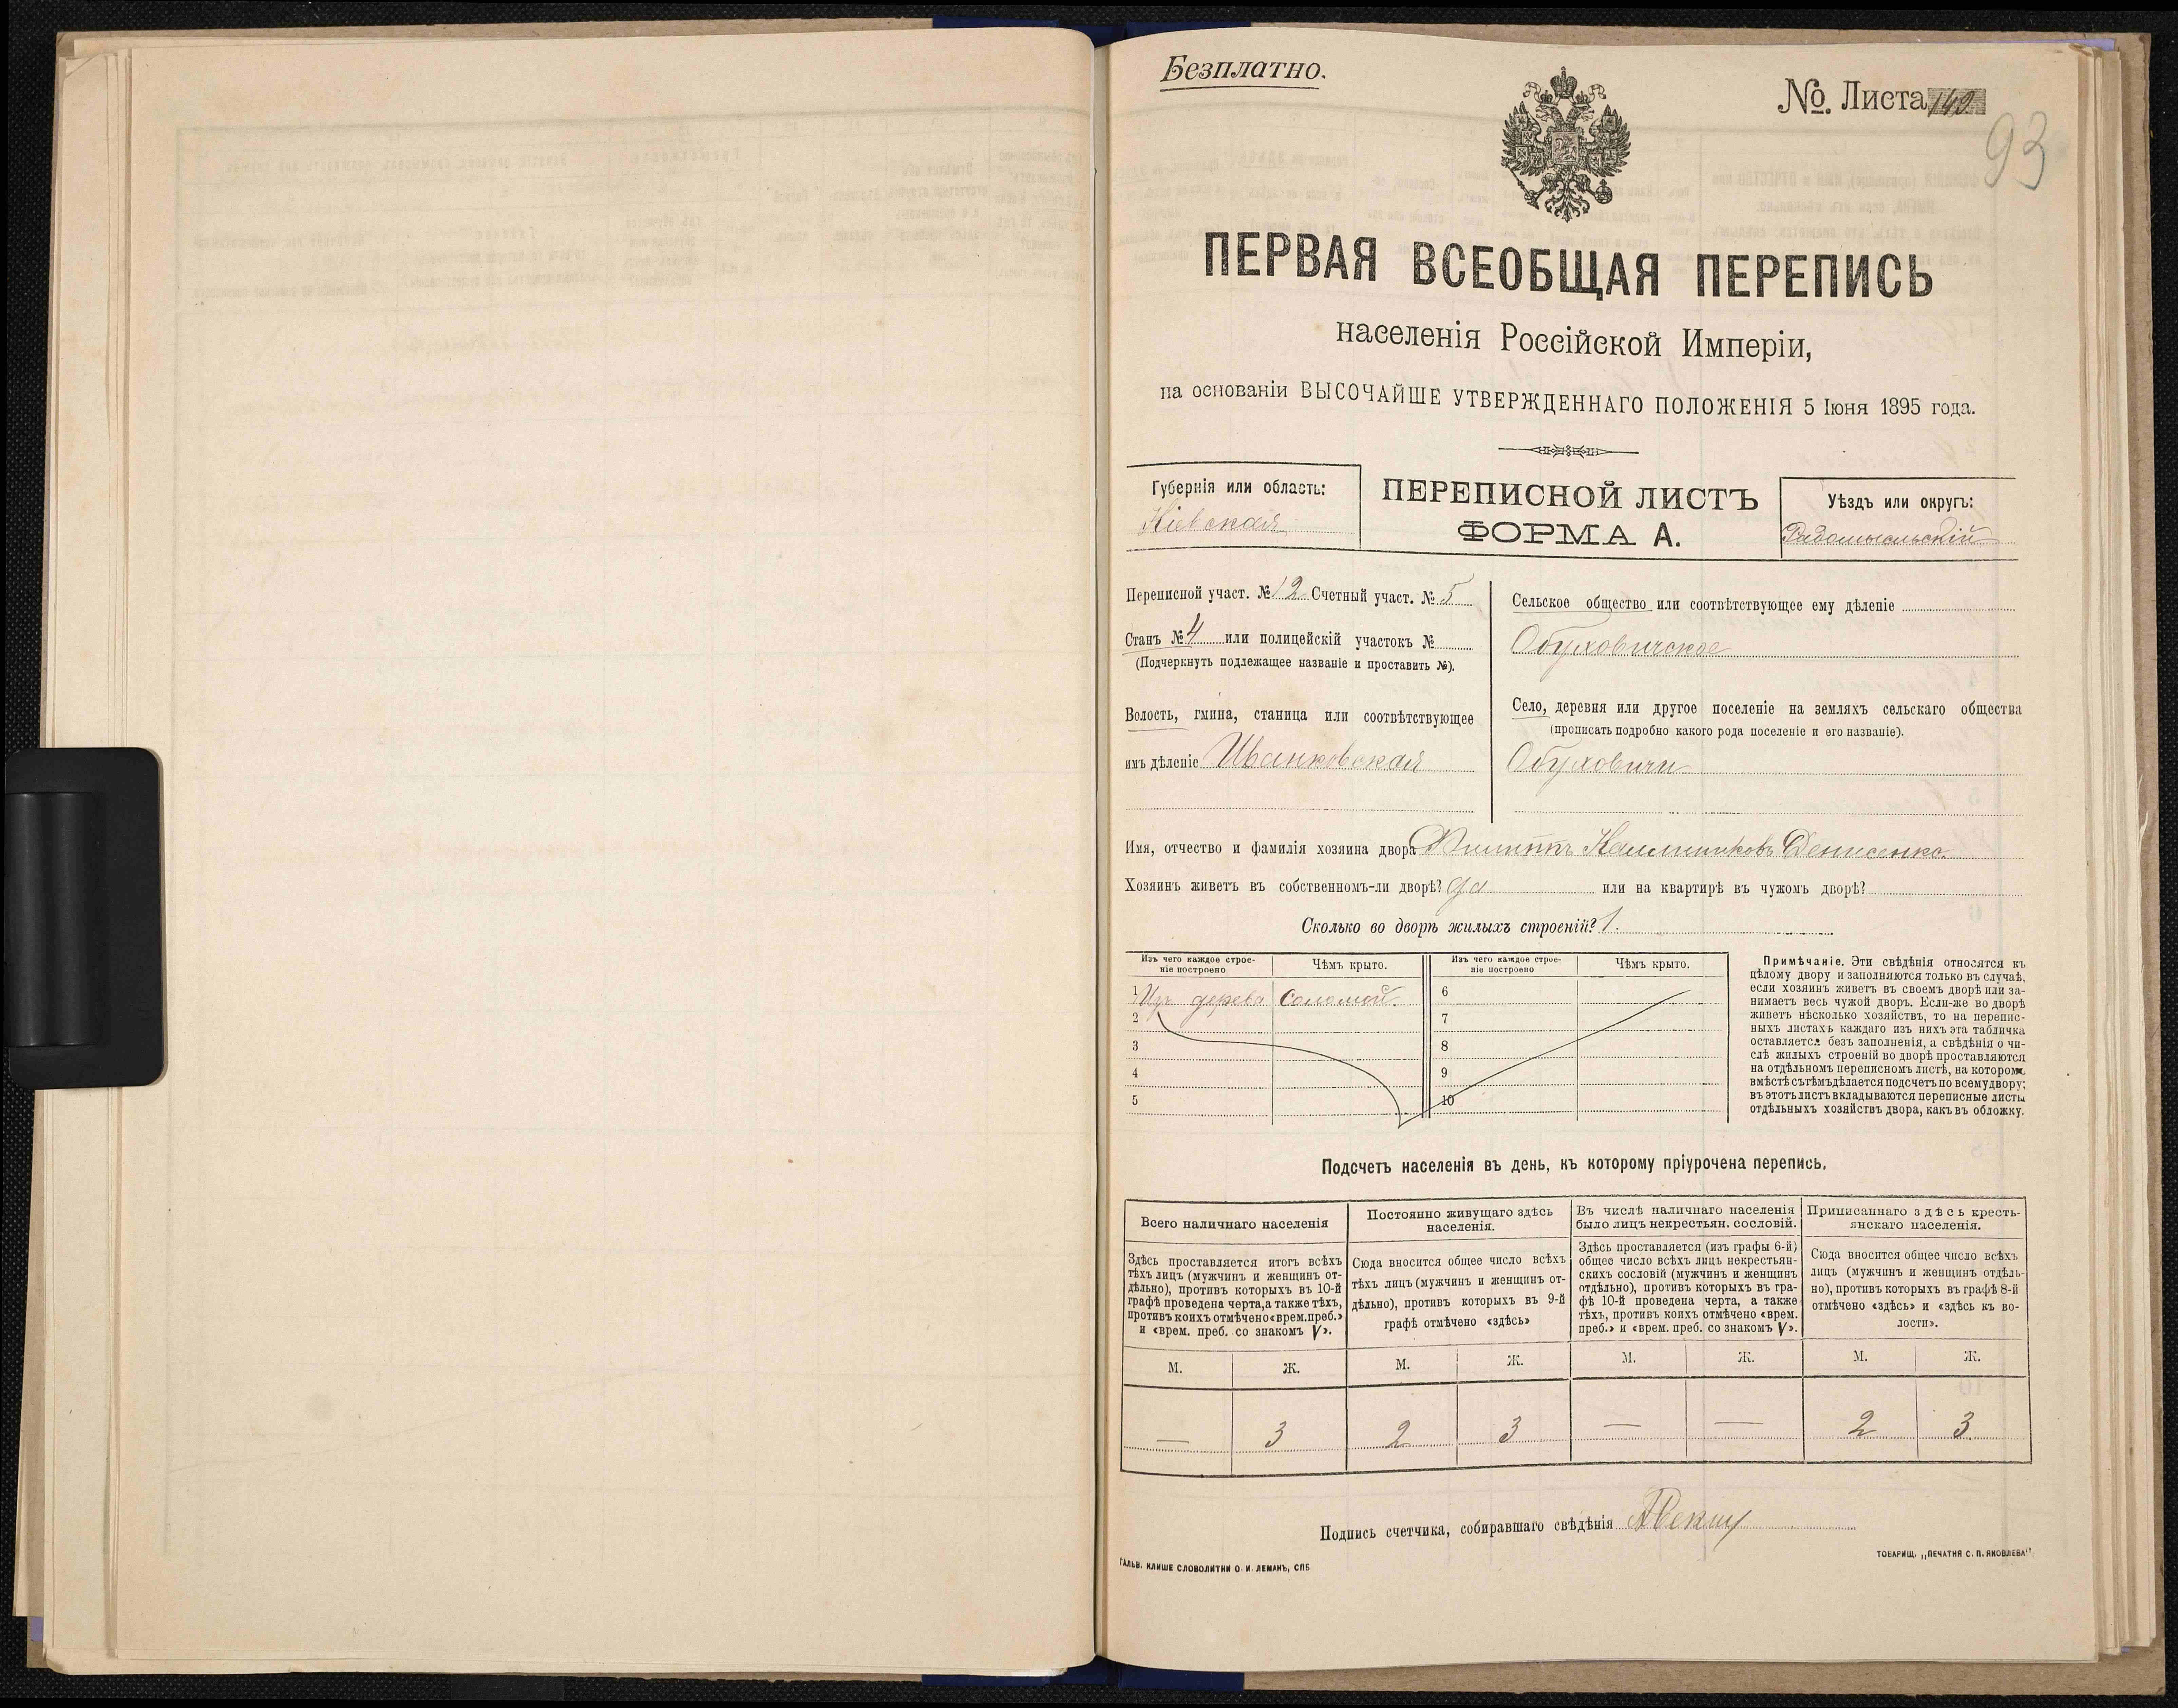 Безплатно.
№ Листа 149
93
ПЕРВАЯ ВСЕОБЩАЯ ПЕРЕПИСЬ
населенія Россійской Имперіи,
на основаніи ВЫСОЧАЙШЕ УТВЕРЖДЕННАГО ПОЛОЖЕНІЯ 5 Іюня 1895 года.
Губернія или область:
Кіевская
ПЕРЕПИСНОЙ ЛИСТЪ
ФОРМА А.
Уѣздъ или округъ:
Радомысльскій
Переписной участ. № 12 Счетный участ. № 5
Станъ № 4 или полицейскій участокъ №
(Подчеркнуть подлежащее названіе и проставить №).
Волость, гмина, станица или соотвѣтствующее
имъ дѣленіе Иванковская
Сельское общество или соотвѣтствующее ему дѣленіе
Обуховичское
Село, деревня или другое поселеніе на земляхъ сельскаго общества
(прописать подробно какого рода поселеніе и его названіе).
Обуховичи
Имя, отчество и фамилія хозяина двора Филиппъ Калинниковъ Денисенко.
Хозяинъ живетъ въ собственномъ-ли дворѣ? да или на квартирѣ въ чужомъ дворѣ?
Сколько во дворѣ жилыхъ строеній? 1.
Изъ чего каждое строе-
ніе построено
Чѣмъ крыто.
Изъ чего каждое строе-
ніе построено
Чѣмъ крыто.
1 Изъ дерева Соломой 6
2 7
3 8
4 9
5 10
Примѣчаніе. Эти свѣдѣнія относятся къ
цѣлому двору и заполняются только въ случаѣ,
если хозяинъ живетъ въ своемъ дворѣ или за-
нимаетъ весь чужой дворъ. Если-же во дворѣ
живетъ нѣсколько хозяйствъ, то на перепис-
ныхъ листахъ каждаго изъ нихъ эта табличка
оставляется безъ заполненія, а свѣдѣнія о чи-
слѣ жилыхъ строеній во дворѣ проставляются
на отдѣльномъ переписномъ листѣ, на которомъ
вмѣстѣ съ тѣмъ дѣлается подсчетъ по всему двору;
въ этотъ листъ вкладываются переписные листы
отдѣльныхъ хозяйствъ двора, какъ въ обложку.
Подсчетъ населенія въ день, къ которому пріурочена перепись.
Всего наличнаго населенія
Постоянно живущаго здѣсь
населенія.
Въ числѣ наличнаго населенія
было лицъ некрестьян. сословій.
Приписаннаго здѣсь кресть-
янскаго населенія.
Здѣсь проставляется итогъ всѣхъ
тѣхъ лицъ (мужчинъ и женщинъ от-
дѣльно), противъ которыхъ въ 10-й
графѣ проведена черта, а также тѣхъ,
противъ коихъ отмѣчено «врем. преб.»
и «врем. преб. со знакомъ V».
Сюда вносится общее число всѣхъ
тѣхъ лицъ (мужчинъ и женщинъ от-
дѣльно), противъ которыхъ въ 9-й
графѣ отмѣчено «здѣсь»
Здѣсь проставляется (изъ графы 6-й)
общее число всѣхъ лицъ некрестьян-
скихъ сословій (мужчинъ и женщинъ
отдѣльно), противъ которыхъ въ гра-
фѣ 10-й проведена черта, а также
тѣхъ, противъ коихъ отмѣчено «врем.
преб.» и «врем. преб. со знакомъ V».
Сюда вносится общее число всѣхъ
лицъ (мужчинъ и женщинъ отдѣль-
но), противъ которыхъ въ графѣ 8-й
отмѣчено «здѣсь» и «здѣсь къ во-
лости».
М. Ж. М. Ж. М. Ж. М. Ж.
— 3 2 3 — — 2 3
Подпись счетчика, собиравшаго свѣдѣнія
ГАЛЬВ. КЛИШЕ СЛОВОЛИТНИ О. И. ЛЕМАНЪ, СПБ
ТОВАРИЩ. „ПЕЧАТНЯ С. П. ЯКОВЛЕВА"